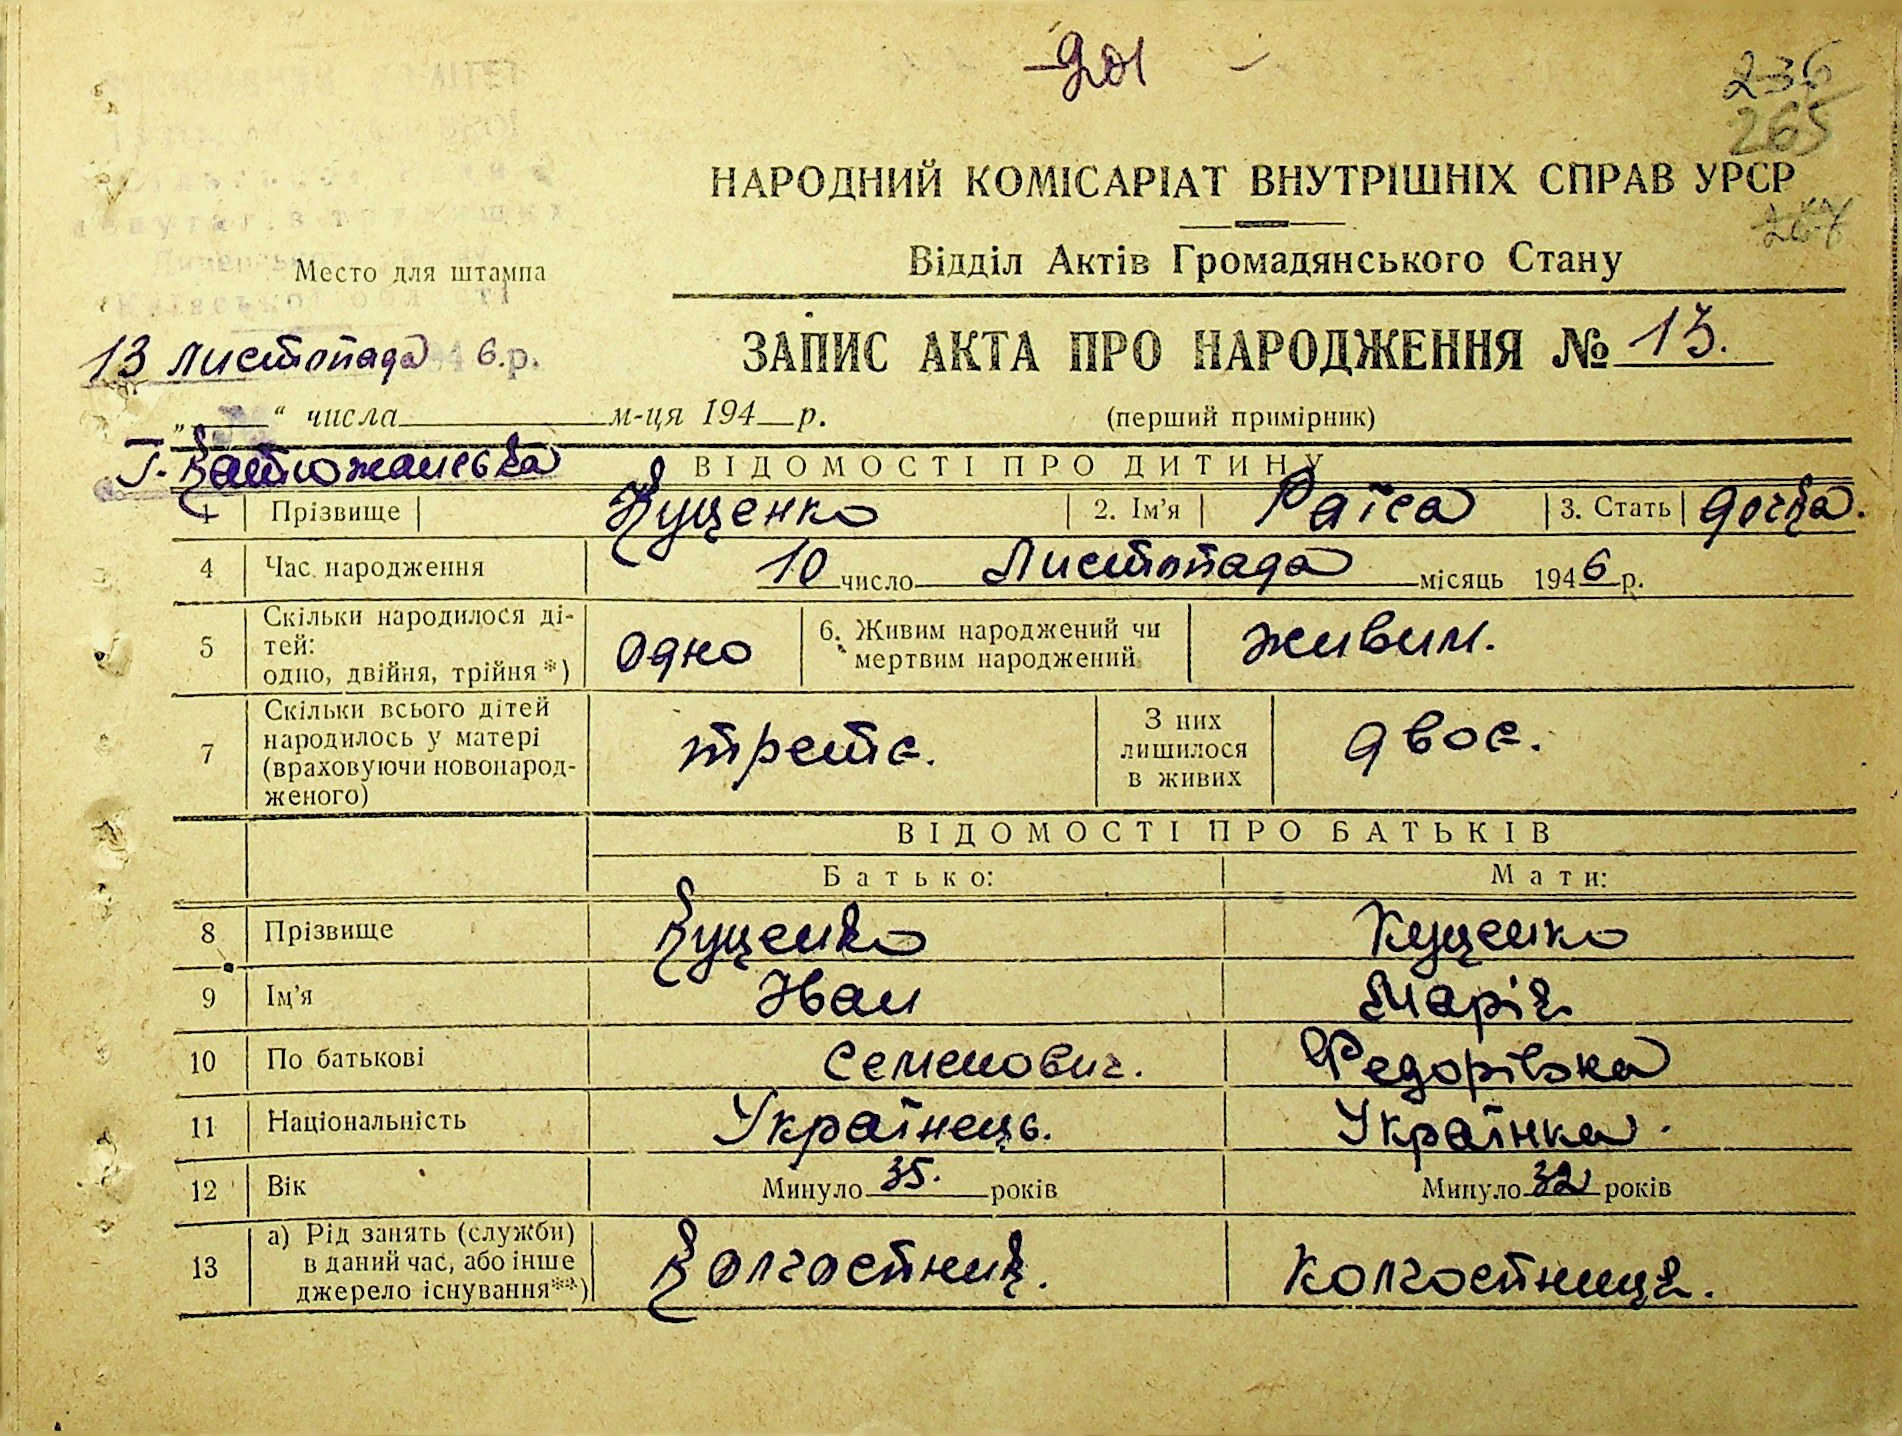 236
265
НАРОДНИЙ КОМІСАРІАТ ВНУТРІШНІХ СПРАВ УРСР
Відділ Актів Громадянського Стану
Место для штампа
Київської області
13 листопада 194 6.р.
ЗАПИС АКТА ПРО НАРОДЖЕННЯ № 13.
„ “ числа м-ця 194 р.
(перший примірник)
Г-Катюжанська
ВІДОМОСТІ ПРО ДИТИНУ
1 Прізвище Куценко 2. Ім'я Раїса 3. Стать дочка.
4 Час народження 10 число Листопада місяць 1946 р.
5 Скільки народилося ді-
тей:
одно, двійня, трійня*) одно 6. Живим народжений чи
мертвим народжений живим.
7 Скільки всього дітей
народилось у матері
(враховуючи новонарод-
женого) третє. З них
лишилося
в живих двоє.
ВІДОМОСТІ ПРО БАТЬКІВ
Батько: Мати:
8 Прізвище Куценко Куценко
9 Ім'я Іван Марія
10 По батькові Семенович. Федорівка
11 Національність Українець. Українка.
12 Вік Минуло 35. років Минуло 32 років
13 а) Рід занять (служби)
в даний час, або інше
джерело існування**) Колгостник. Колгостниця.